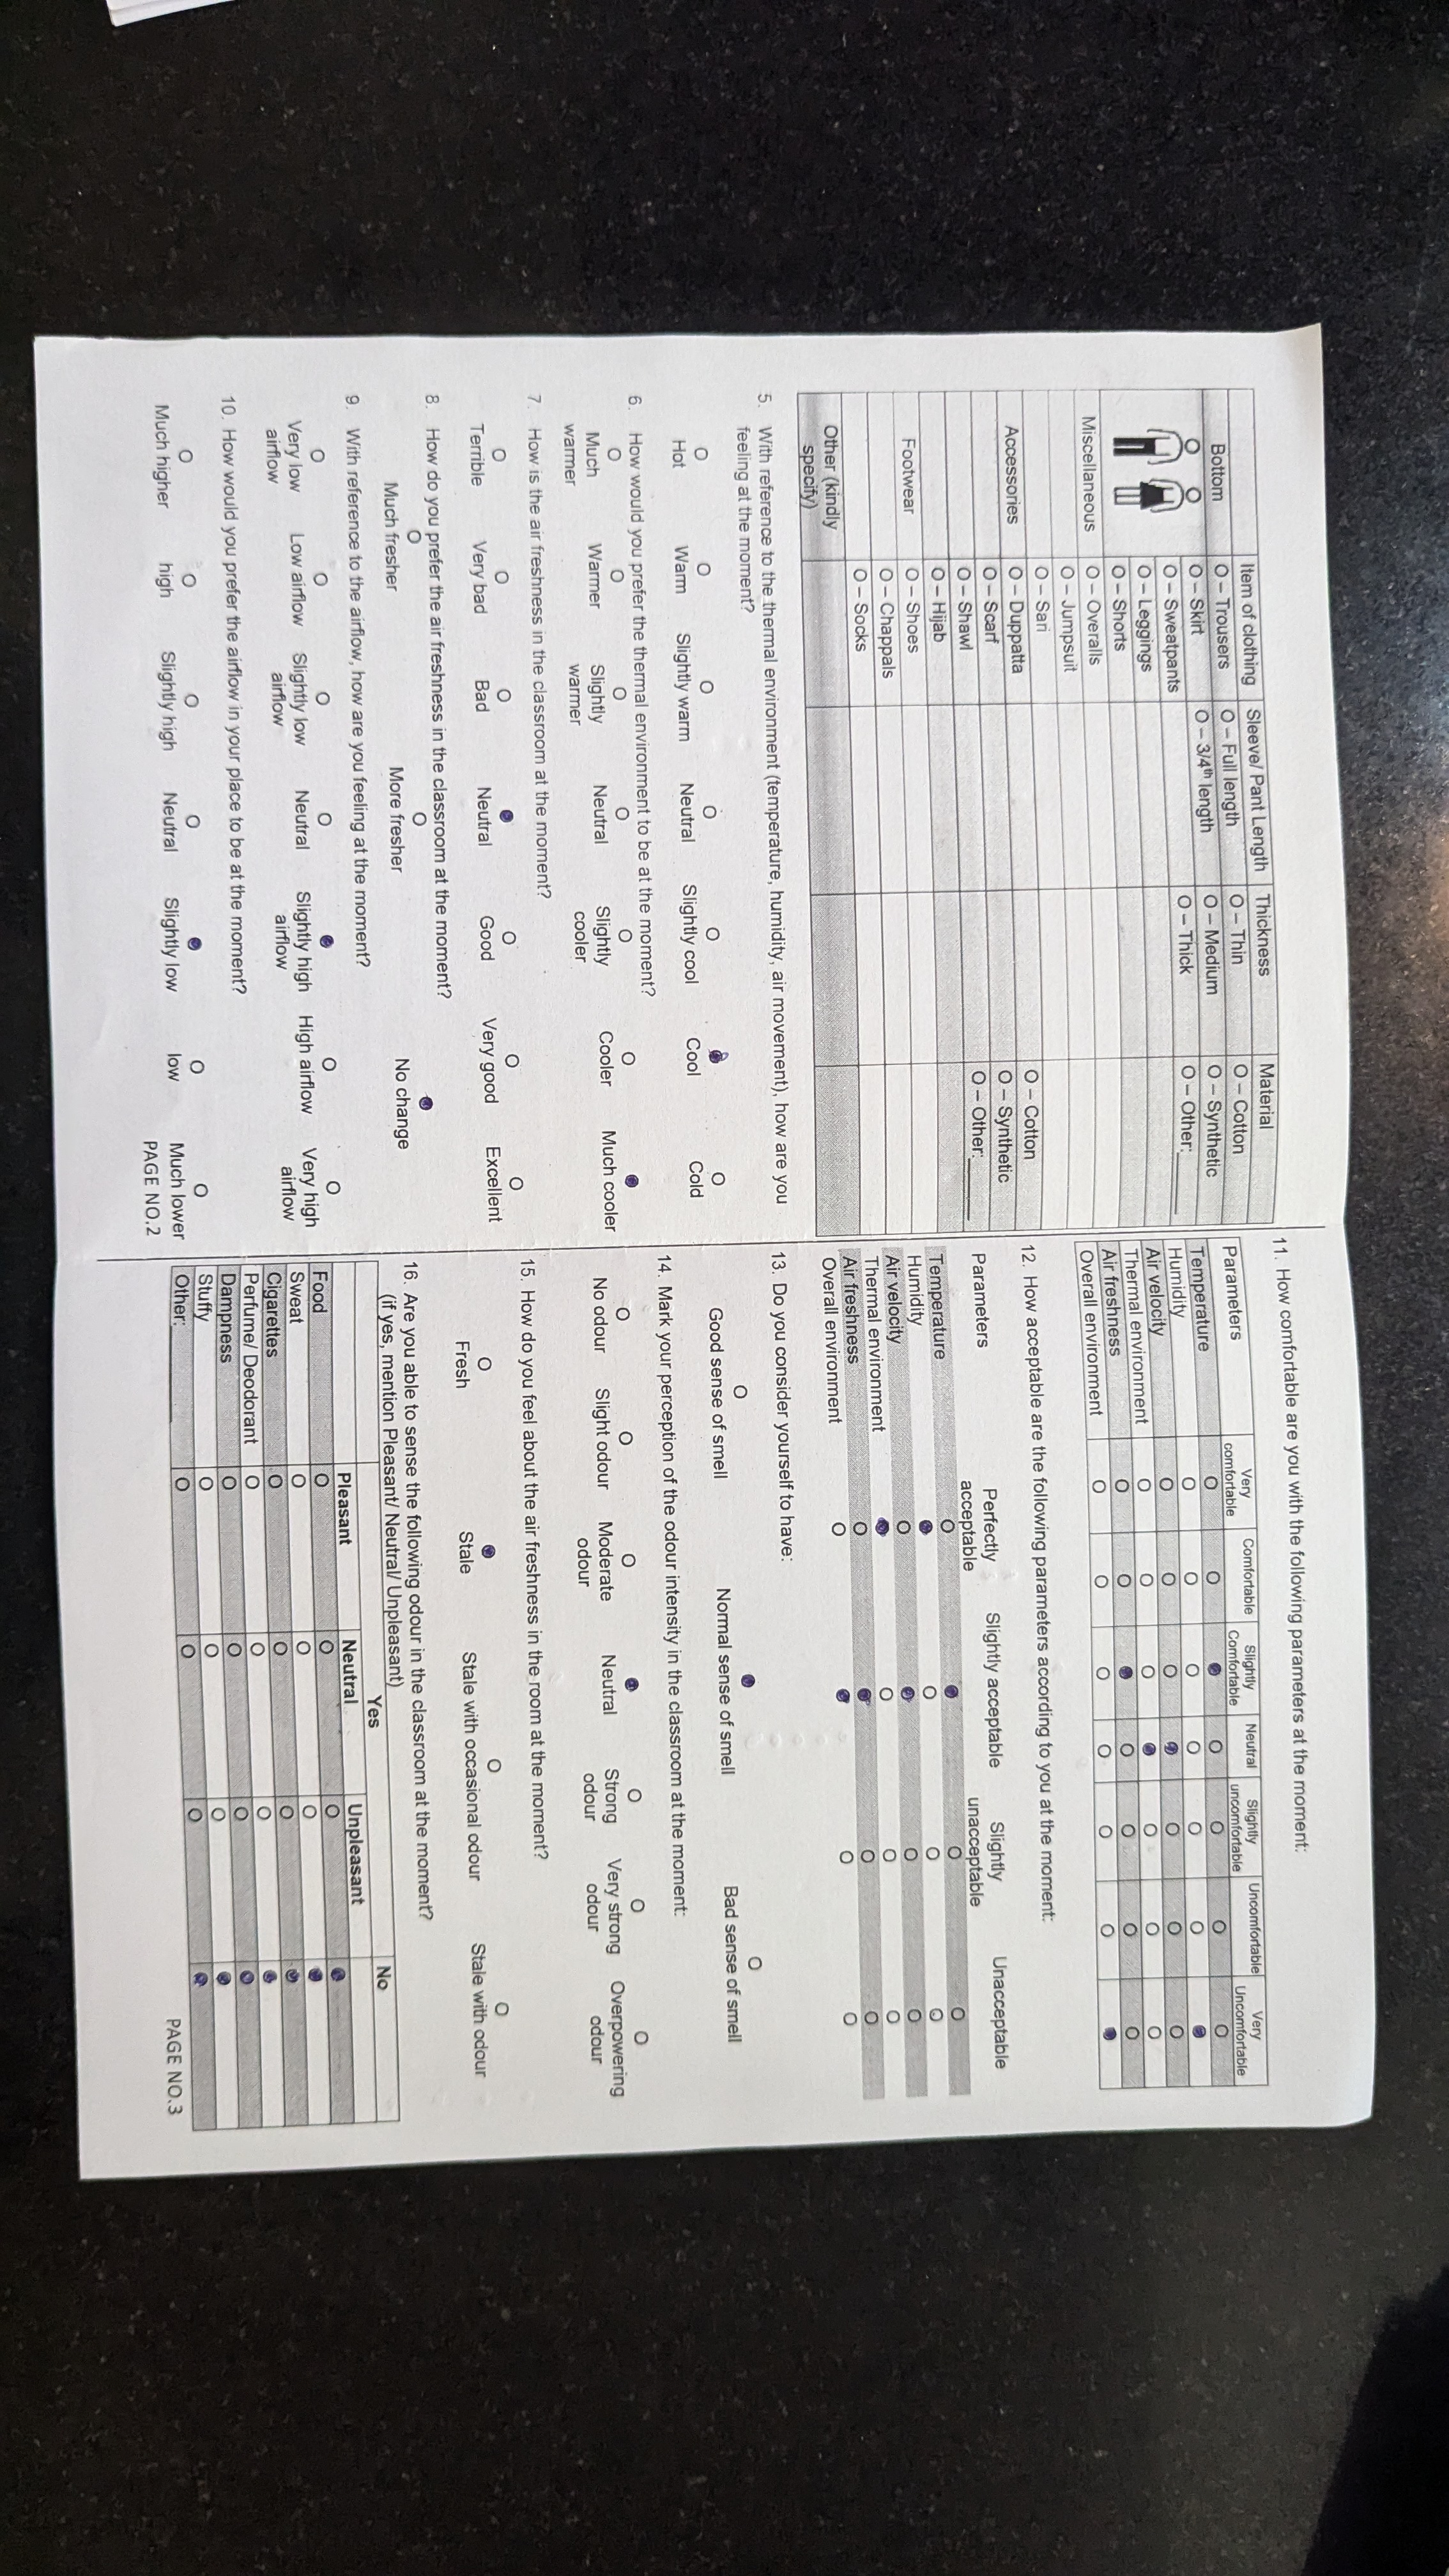 Item of clothing Sleeve/ Pant Length Thickness Material
Bottom O – Trousers O – Full length O – Thin O – Cotton
O – Skirt O – 3/4th length O – Medium O – Synthetic
O – Sweatpants O – Thick O – Other:______
O – Leggings
O – Shorts
Miscellaneous O – Overalls
O – Jumpsuit
O – Sari
Accessories O – Duppatta O – Cotton
O – Scarf O – Synthetic
O – Shawl O – Other:______
O – Hijab
Footwear O – Shoes
O – Chappals
O – Socks
Other (kindly
specify)
5. With reference to the thermal environment (temperature, humidity, air movement), how are you
feeling at the moment?
Hot Warm Slightly warm Neutral Slightly cool Cool Cold
6. How would you prefer the thermal environment to be at the moment?
Much Warmer Slightly Neutral Slightly Cooler Much cooler
warmer warmer cooler
7. How is the air freshness in the classroom at the moment?
Terrible Very bad Bad Neutral Good Very good Excellent
8. How do you prefer the air freshness in the classroom at the moment?
Much fresher More fresher No change
9. With reference to the airflow, how are you feeling at the moment?
Very low Low airflow Slightly low Neutral Slightly high High airflow Very high
airflow airflow airflow airflow
10. How would you prefer the airflow in your place to be at the moment?
Much higher high Slightly high Neutral Slightly low low Much lower
PAGE NO.2
11. How comfortable are you with the following parameters at the moment:
Parameters Very comfortable Comfortable Slightly Comfortable Neutral Slightly uncomfortable Uncomfortable Very Uncomfortable
Temperature O O O O O O
Humidity O O O O O O
Air velocity O O O O O O
Thermal environment O O O O O O
Air freshness O O O O O O
Overall environment O O O O O O
12. How acceptable are the following parameters according to you at the moment:
Parameters Perfectly acceptable Slightly acceptable Slightly unacceptable Unacceptable
Temperature O O O
Humidity O O O
Air velocity O O O
Thermal environment O O O
Air freshness O O O
Overall environment O O O
13. Do you consider yourself to have:
Good sense of smell Normal sense of smell Bad sense of smell
14. Mark your perception of the odour intensity in the classroom at the moment:
No odour Slight odour Moderate Neutral Strong Very strong Overpowering
odour odour odour odour
15. How do you feel about the air freshness in the room at the moment?
Fresh Stale Stale with occasional odour Stale with odour
16. Are you able to sense the following odour in the classroom at the moment?
(if yes, mention Pleasant/ Neutral/ Unpleasant)
Yes No
Pleasant Neutral Unpleasant
Food O O O
Sweat O O O
Cigarettes O O O
Perfume/ Deodorant O O O
Dampness O O O
Stuffy O O O
Other:______ O O O
PAGE NO.3